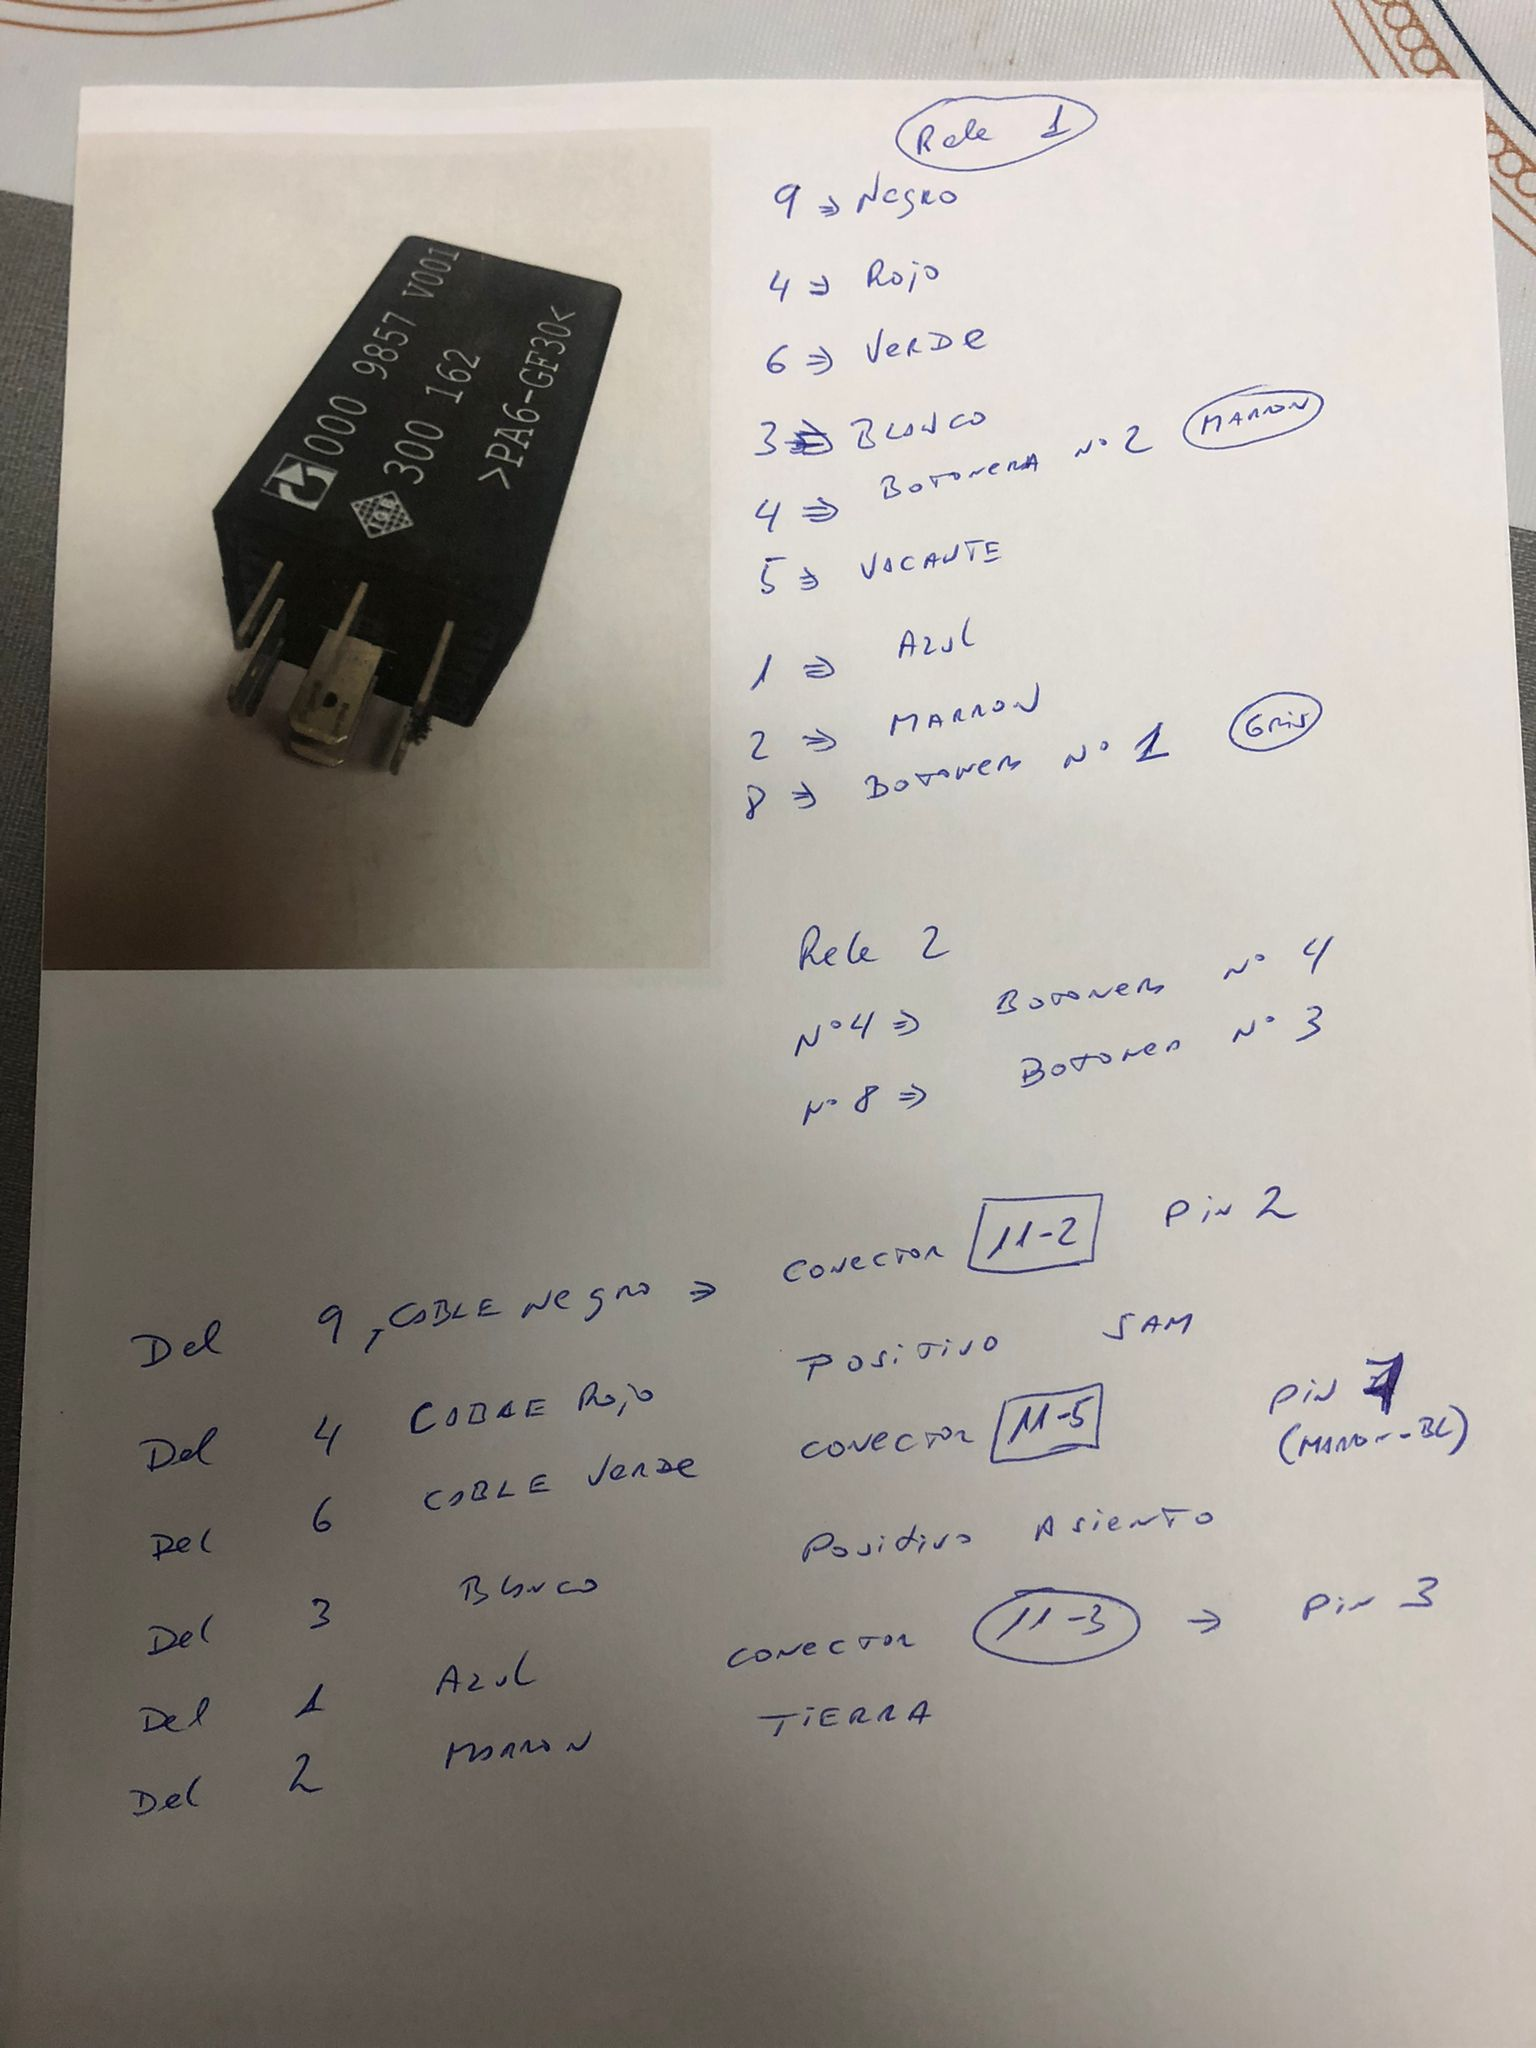 000 9857 V001
300 162
>PA6-GF30<
Rele 1
9 ⇒ Negro
4 ⇒ Rojo
6 ⇒ Verde
3 ⇒ Blanco
4 ⇒ Botonera Nº 2 Marron
5 ⇒ Vacante
1 ⇒ Azul
2 ⇒ Marron
8 ⇒ Botonera Nº 1 Gris
Rele 2
Nº4 ⇒ Botonera Nº 4
Nº 8 ⇒ Botonera Nº 3
Del 9, Cable Negro ⇒ Conector 11-2 Pin 2
Del 4 Cable Rojo Positivo SAM
Del 6 Cable Verde Conector 11-5 Pin
Del 3 Blanco Positivo Asiento
Del 1 Azul Conector 11-3 → Pin 3
Del 2 Marron Tierra